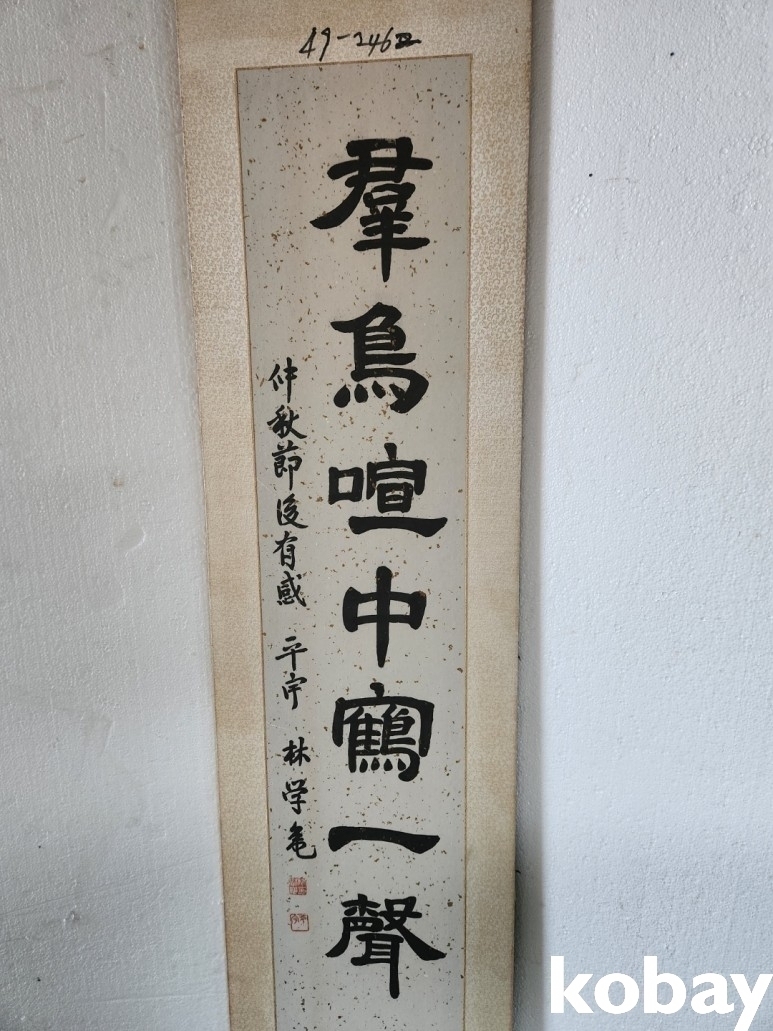 49-246
羣烏喧中鶴一聲
仲秋節後有感 平宇 林学
kobay